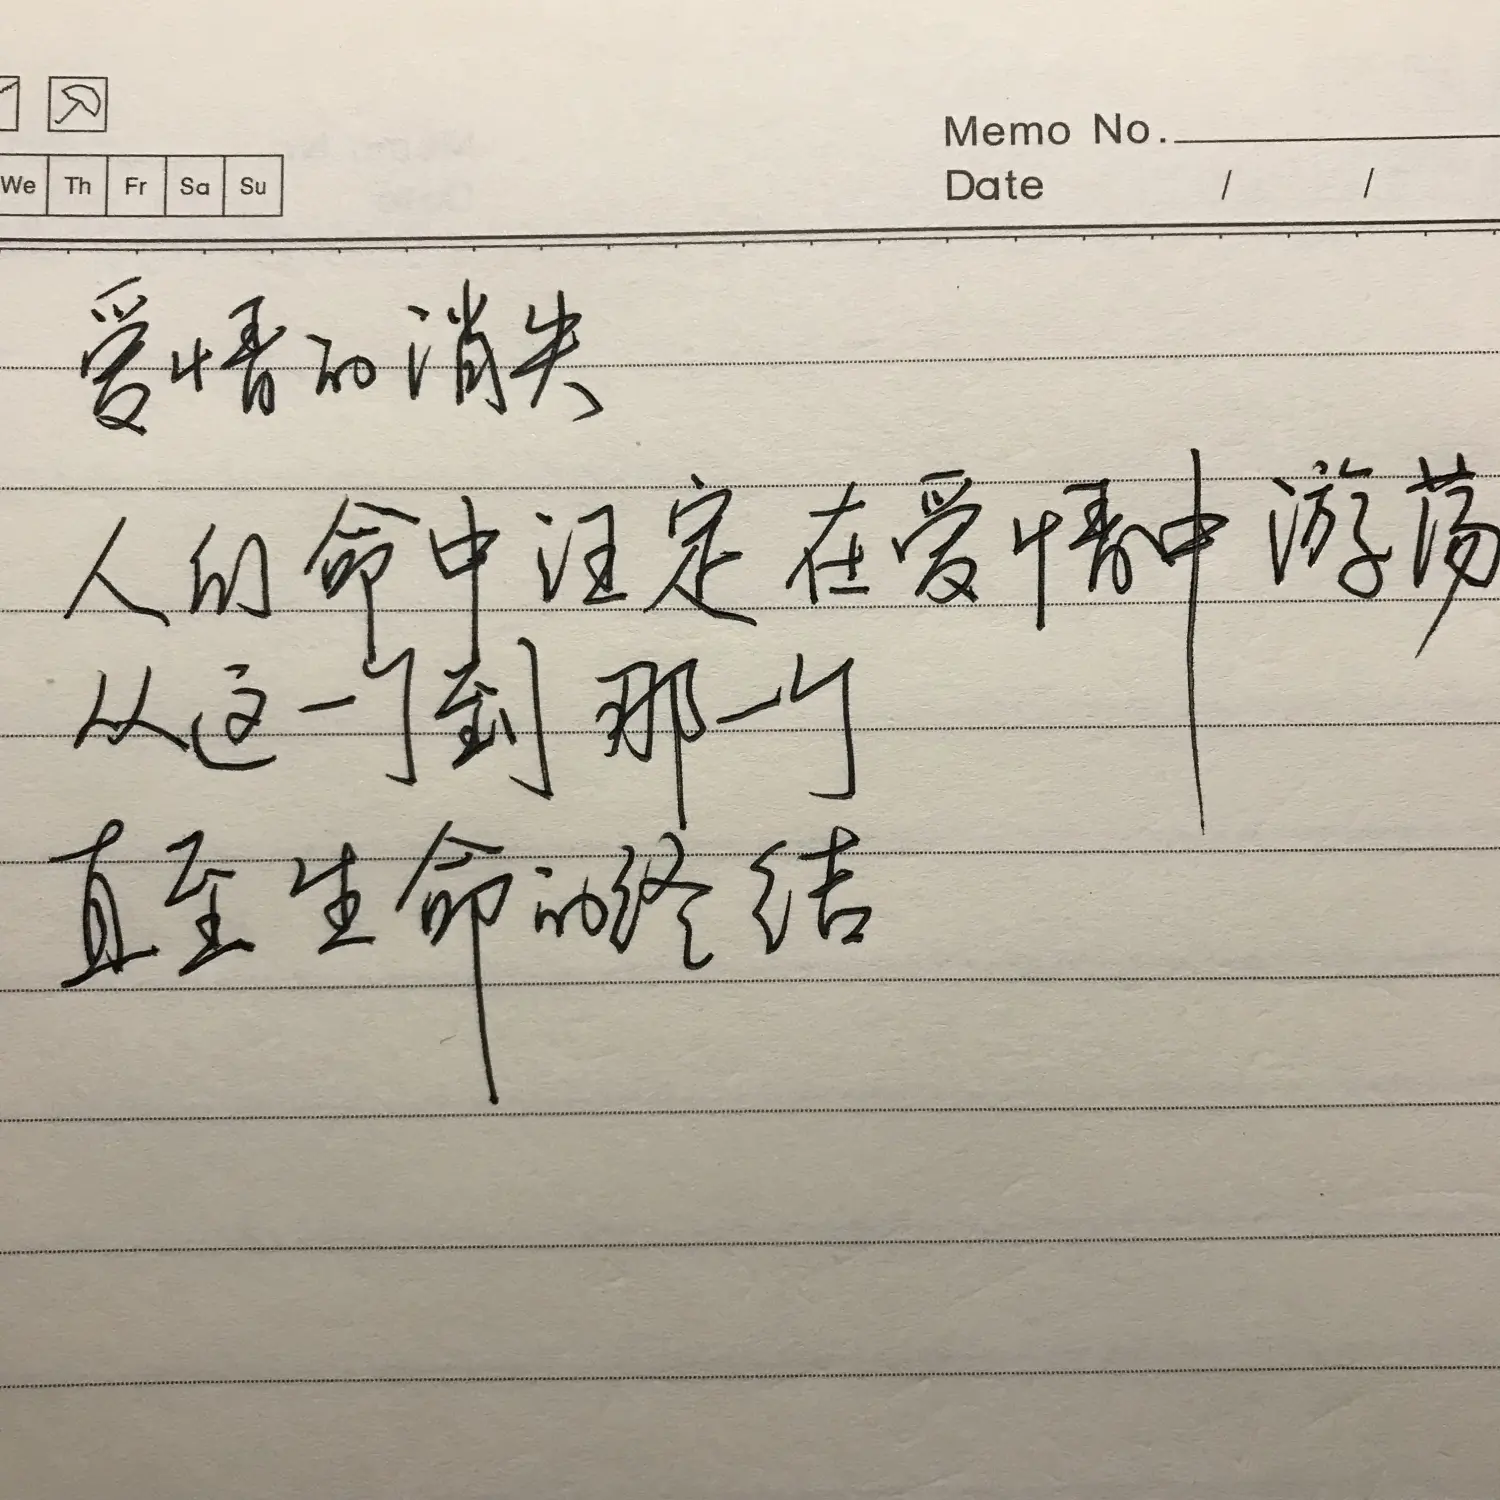 We Th Fr Sa Su
Memo No.
Date / /
爱情的消失
人们命中注定在爱情中游荡
从这一个到那一个
直至生命的终结